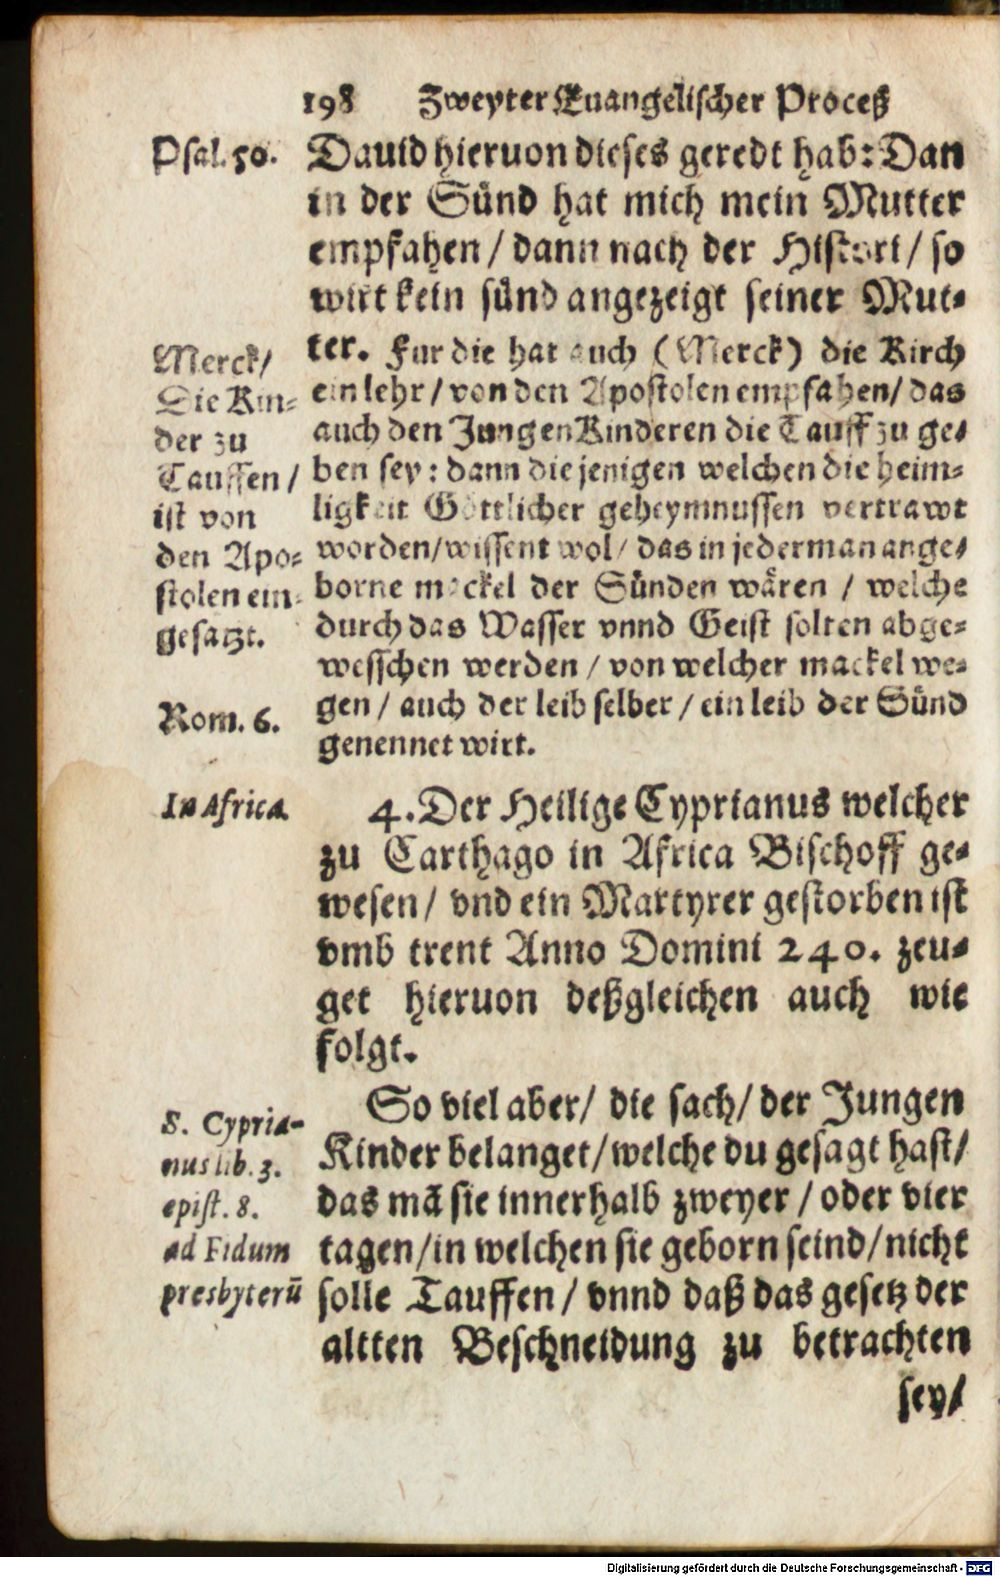 198 Zweyter Euangelischer Proceß
Psal. 50.
Dauid hieruon dieses geredt hab: Dan
in der Sünd hat mich mein Mutter
empfahen / dann nach der Histori / so
wirt kein sünd angezeigt seiner Mut-
ter. Fur die hat auch (Merck) die Kirch
ein lehr / von den Apostolen empfahen / das
auch den Jungen Kinderen die Tauff zu ge-
ben sey: dann die jenigen welchen die heim-
ligkeit Göttlicher geheymnussen vertrawt
worden / wissent wol / das in jederman ange-
borne mackel der Sünden wären / welche
durch das Wasser vnnd Geist solten abge-
wesschen werden / von welcher mackel we-
gen / auch der leib selber / ein leib der Sünd
genennet wirt.
Merck /
Die Kin-
der zu
Tauffen /
ist von
den Apo-
stolen ein-
gesatzt.
Rom. 6.
In Africa
4. Der Heilige Cyprianus welcher
zu Carthago in Africa Bischoff ge-
wesen / vnd ein Martyrer gestorben ist
vmb trent Anno Domini 240. zeu-
get hieruon deßgleichen auch wie
folgt.
S. Cypria-
nus lib. 3.
epist. 8.
ad Fidum
presbyterū
So viel aber / die sach / der Jungen
Kinder belanget / welche du gesagt hast /
das mā sie innerhalb zweyer / oder vier
tagen / in welchen sie geborn seind / nicht
solle Tauffen / vnnd daß das gesetz der
altten Beschneidung zu betrachten
sey /
Digitalisierung gefördert durch die Deutsche Forschungsgemeinschaft - DFG